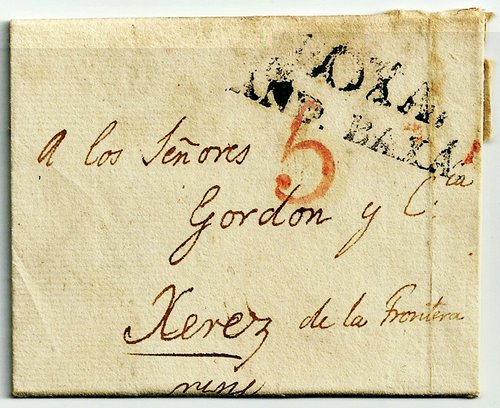 LOXA,
AND. BAXA
5
A los Señores
Gordon y C.ia
Xerez de la Frontera